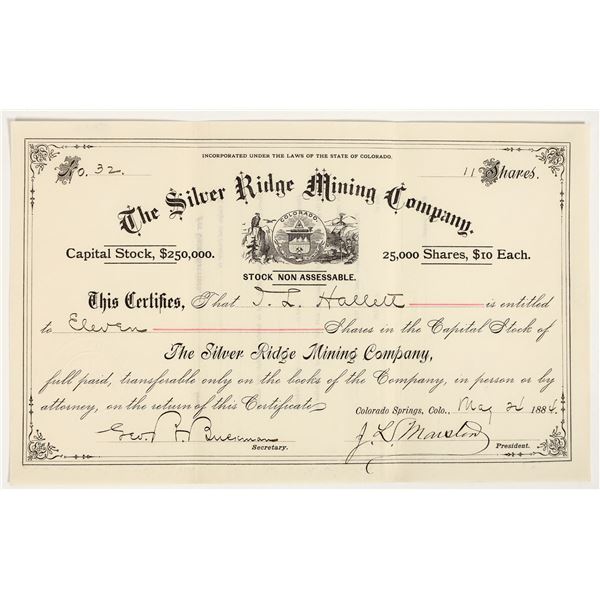 INCORPORATED UNDER THE LAWS OF THE STATE OF COLORADO.
No. 32. 11 Shares.
The Silver Ridge Mining Company.
COLORADO
Capital Stock, $250,000. 25,000 Shares, $10 Each.
STOCK NON ASSESSABLE.
This Certifies, That I. L. Hallett is entitled
to Eleven Shares in the Capital Stock of
The Silver Ridge Mining Company,
full paid, transferable only on the books of the Company, in person or by
attorney, on the return of this Certificate
Colorado Springs, Colo., May 1884.
Geo. J. L. Marston
Secretary. President.